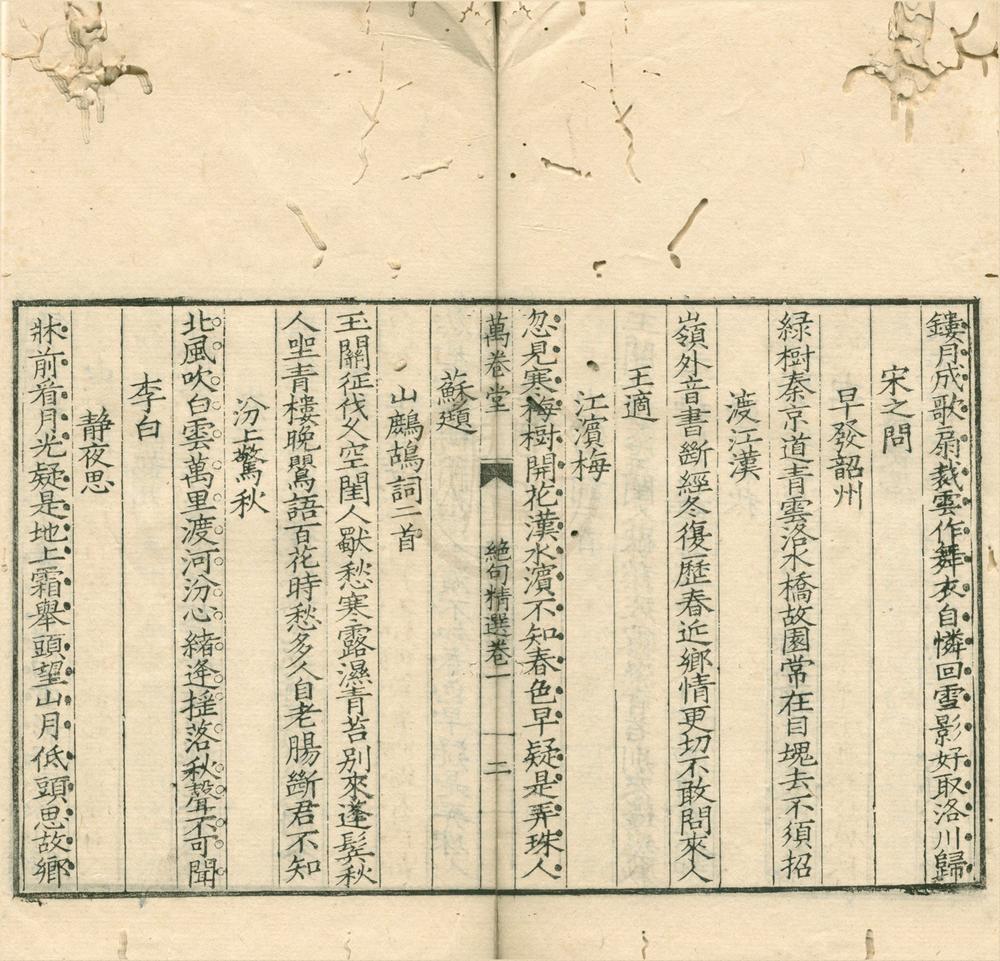 鏤月成歌扇裁雲作舞衣自憐回雪影好取洛川歸
宋之問
早發韶州
綠樹秦京道青雲洛水橋故園常在目塊去不須招
渡江漢
嶺外音書斷經冬復歷春近鄉情更切不敢問來人
王適
江濱梅
忽見寒梅樹開花漢水濱不知春色早疑是弄珠人
萬卷堂
絕句精選卷一
二
蘇頲
山鷓鴣詞二首
玉關征伐久空閨人獸愁寒露濕青苔別來蓬鬂秋
人坐青樓晚鶯語百花時愁多人自老腸斷君不知
汾上驚秋
北風吹白雲萬里渡河汾心緒逢搖落秋聲不可聞
李白
静夜思
牀前看月光疑是地上霜舉頭望山月低頭思故鄉